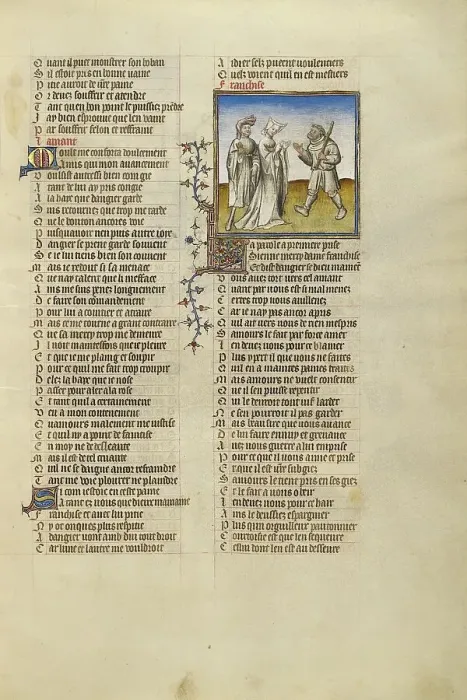 Quant il puet monstrer son boban
S il estoit pris en bonne vaine
P itie auroit de
O r devez souffrir et atendre
T ant quen bon point le puissiez prendre
J ay bien esprouve que len vaint
P ar souffrir felon et reffraint
Lamant
Moult me conforta doulcement
Amis qui mon avancement
V oulsist aussi bien com gie
A tant de lui ay pris congie
A la haie que dangier garde
S uis retournez que trop me tarde
Q ue le bouton ancores voie
P uisquavoir nen puis autre joie
D angier se prent garde souvent
S e je lui tiens bien son couvent
M ais je redout si sa menace
Q ue nay talent que li mefface
A ins me suis penez longuement
D e faire son commandement
P our lui acointer et atraire
M ais ce me tourne a grant contraire
Q ue sa mercy trop me demeure
J l voit maintesfois que je pleure
E t que je me plaing et soupir
P our ce quil me fait trop croupir
D elez la haie que je nose
P asser pour aler a la rose
T ant quil a certainement
V eu a mon contenement
Q uamours malement me justise
E t quil ny a point de faintise
E n moy ne de desleaute
M ais il est de tel cruaute
Q uil ne se daigne ancor refraindre
T ant me voie plourer ne plaindre
Si com jestoie en ceste paine
Atant ez vous que dieux mamaine
F ranchise et avec lui pitie
N y ot onques plus respitie
A dangier vont amb dui tout droit
C ar lune et lautre me vouldroit
A idier selz puent voulentiers
Q uelz voient quil en est mestiers
Franchise
La parole a premiere prise
Sienne mercy dame franchise
Et dist dangier se dieu mament
V ous avez tort vers cel amant
Q uant par vous est si mal menez
C ertes trop vous avillenez
C ar je nay pas ancor apris
Q uil ait vers vous de rien mespris
S amours le fait par force amer
E n devez vous pour ce blamer
P lus y pert il que vous ne faites
Q uil en a maintes paines traites
M ais amours ne veult consentir
Q ue il sen puisse repentir
Q ui le devroit tout vif larder
N e sen pourroit il pas garder
M ais beau sire que vous avance
D e lui faire ennuy et grevance
A vez vous guerre a lui emprise
P our ce que il vous aime et prise
E t que il est vre subgiez
S amours le tient pris en ses giez
E t le fait a vous obeir
E n devez vous pour ce hair
A ins le deussiez espargnier
P lus qun orguilleux pautonnier
C ourtoisie est que len sequeure
C ellui dont len est au desseure